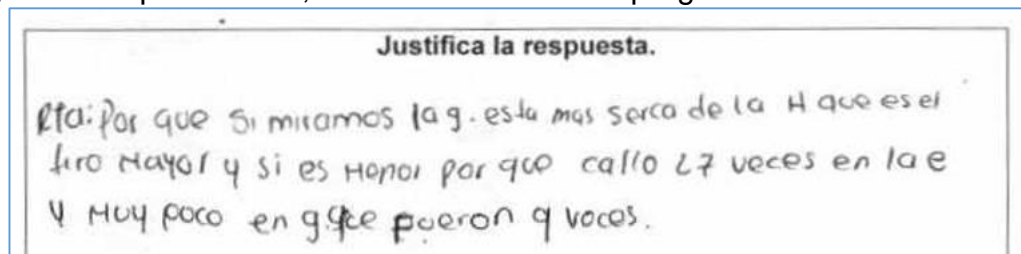 Justifica la respuesta.
Rta: Por que si miramos la g. esta mas serca de la H que es el
tiro Mayor y si es Menor por que callo 27 veces en la e
y Muy poco en g. que pueron 9 veces.